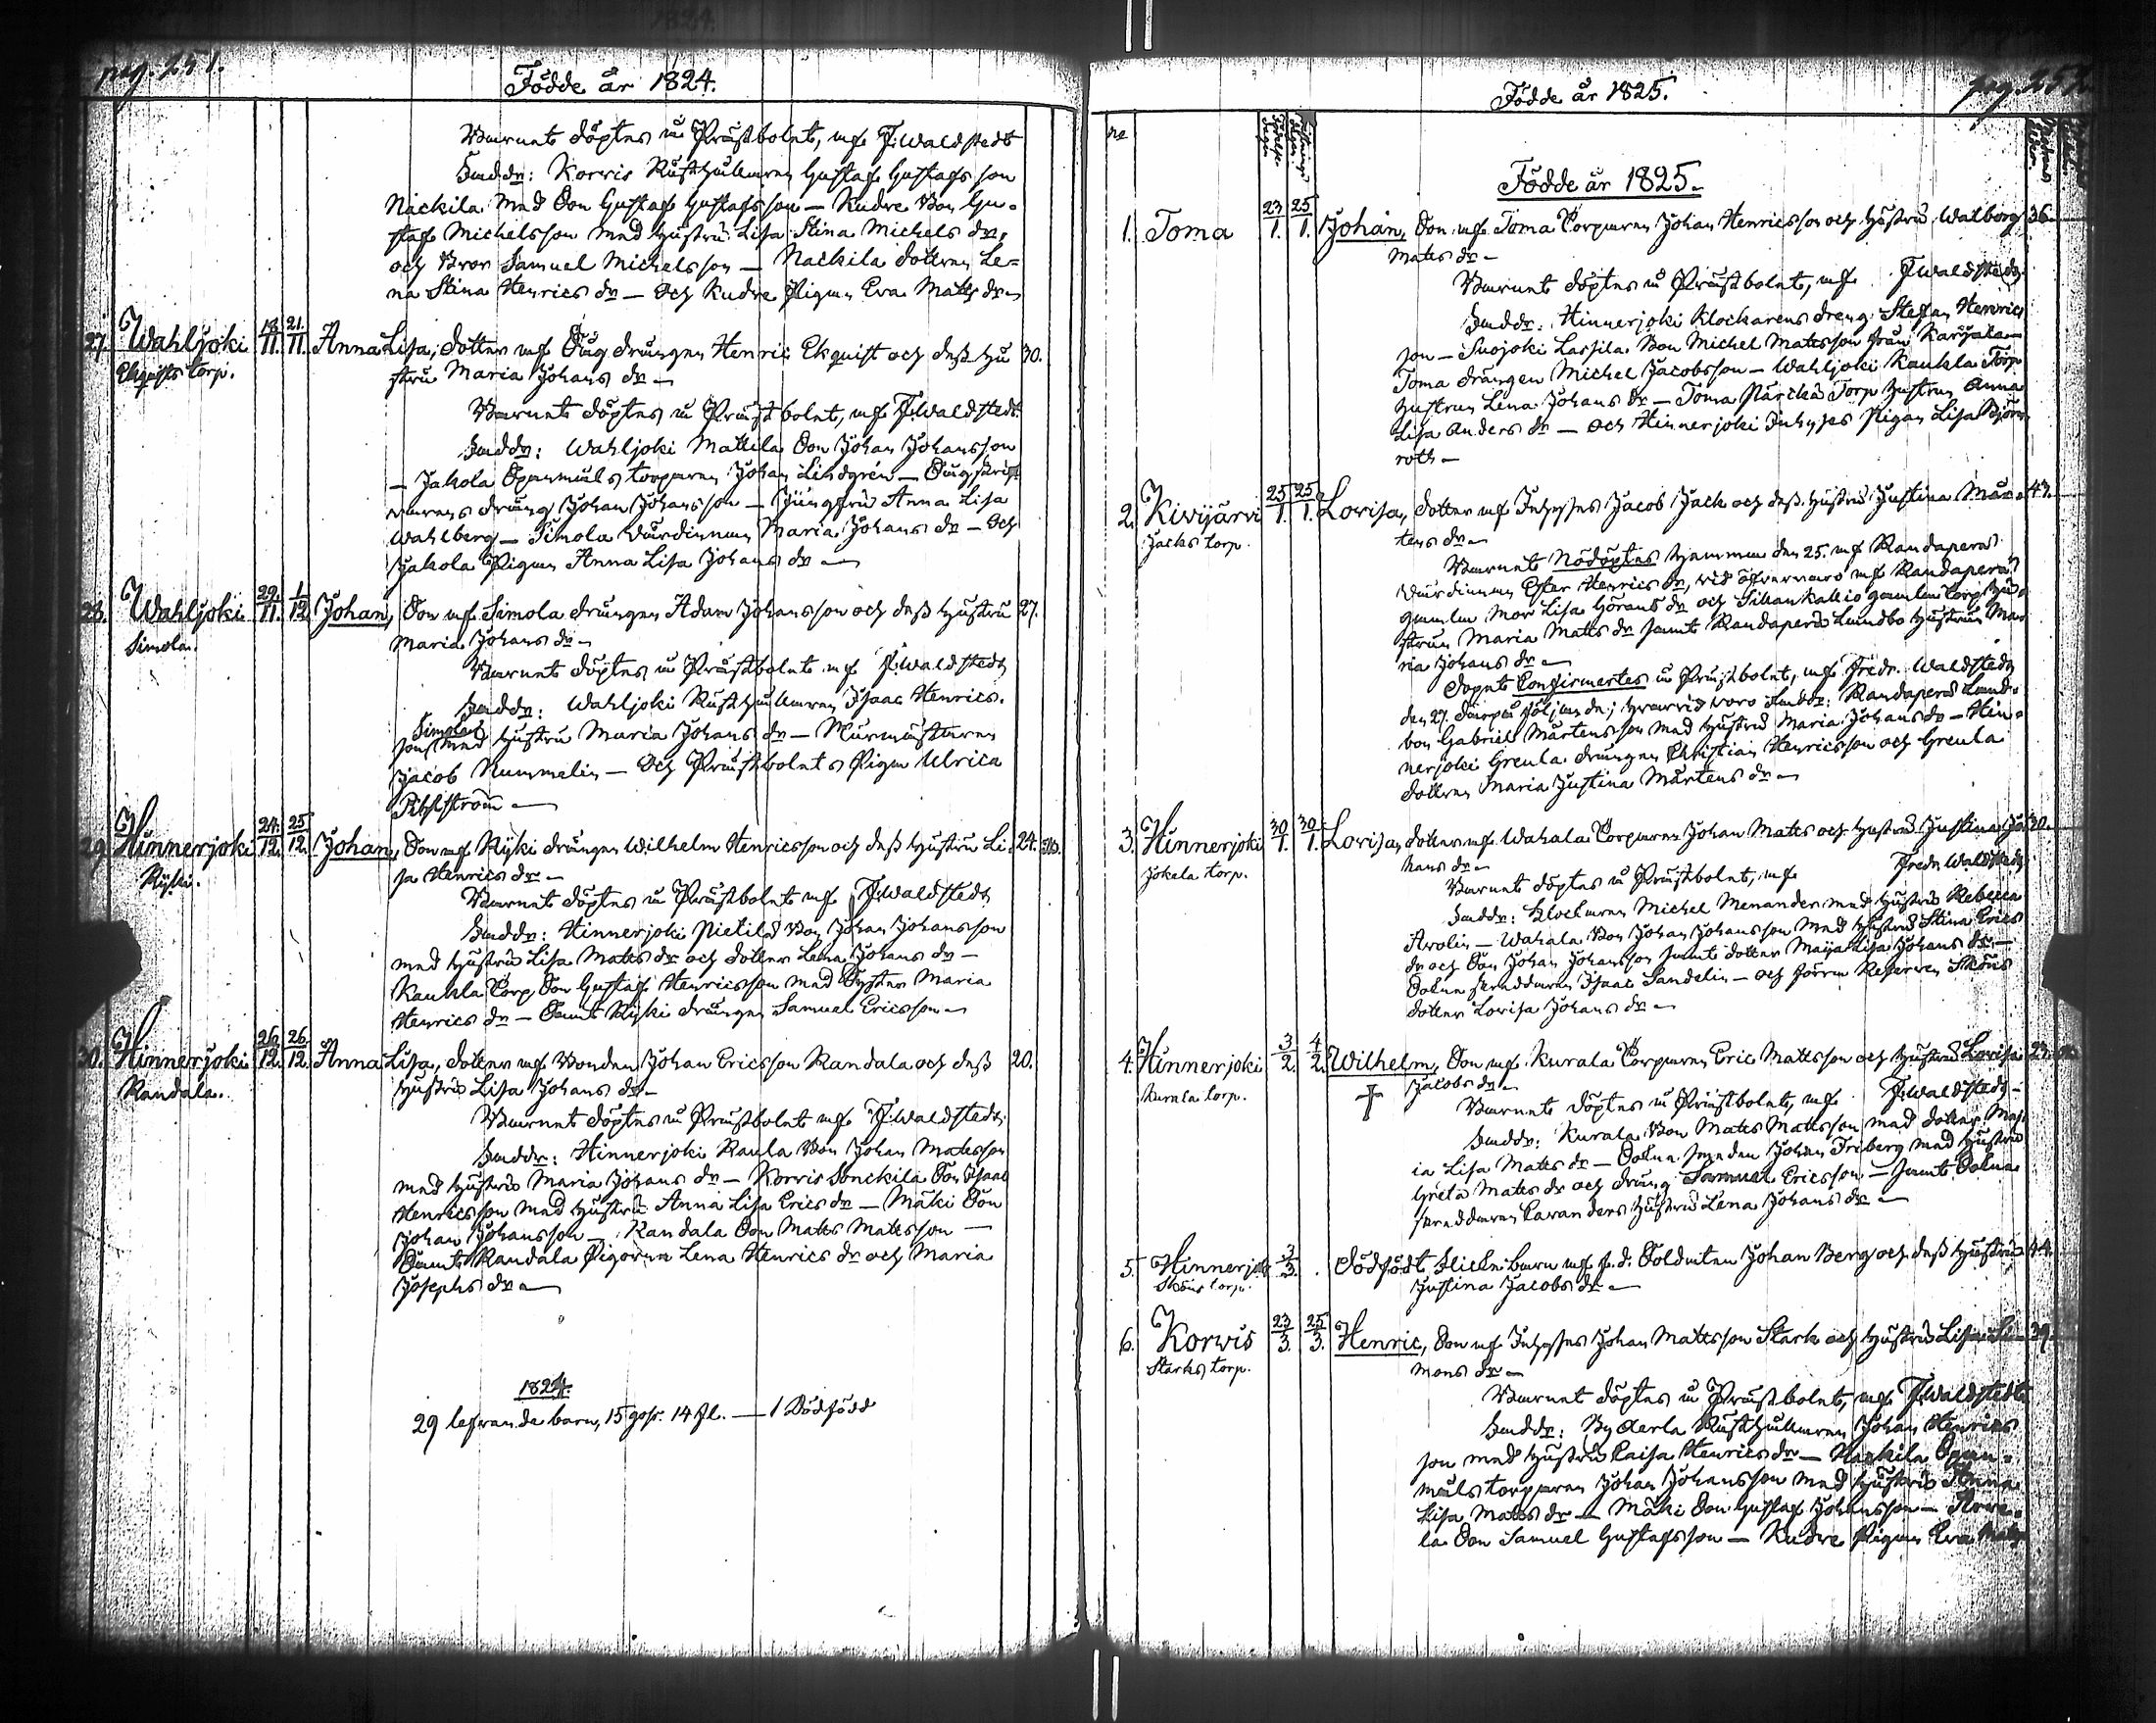 pag. 251.
Födde år 1824.
Barnet döptes i Prästbolet, af F: Waldstedt
Faddr: Korvis Rusthållaren Gustaf Gustafs son
Näckila med Son Gustaf Gustafsson — Kudre Bon Gu-
staf Michelsson med hustru Lisa Stina Michels dr,
och Bror Samuel Michelsson — Nackila dottren Le-
na Stina Henrics dr — Och Kudre Pigan Eva Matts dr —
27. Wahljoki 18/11. 21./11. Anna Lisa, dotter af Såg drängen Henric Ekquist och dess hu 30.
Ekquists torp. stru Maria Johans dr —
Barnet döptes i Prästbolet, af F: Waldstedt
Faddr: Wahljoki Mattila Son Johan Johansson
— Jakola Spanmåls torparen Johan Lindgrén — Sågskrif-
varens dräng Johan Johansson — Jungfru Anna Lisa
Wahlberg — Simola Värdinnan Maria Johans dr — Och
Jakola Pigan Anna Lisa Johans dr —
28. Wahljoki 29./11. 1/12 Johan, Son af Simola drängen Adam Johansson och dess hustru 27.
Simola. Maria Johans dr —
Barnet döptes i Prästbolet af F: Waldstedt
Faddr: Wahljoki Rusthållaren Isaac Henrics-
Simola
son med hustru Maria Johans dr — Murmästaren
Jacob Nummelin — Och Prästbolets Pigan Ulrica
29. Hinnerjoki 24./12. 25/12. Johan, Son af Ryski drängen Wilhelm Henricsson och dess hustru Li- 24.
Ryski. sa Henrics dr —
Barnet döptes i Prästbolet af F: Waldstedt
Faddr: Hinnerjoki Pietilä Bon Johan Johansson
med hustru Lisa Matts dr och dotter Lena Johans dr —
Kaukla Torp Son Gustaf Henricsson med Syster Maria
Henrics dr — Samt Ryski drängen Samuel Ericsson —
30. Hinnerjoki 26/12. 26./12. Anna Lisa, dotter af Bonden Johan Ericsson Randala och dess 20.
Randala. hustru Lisa Johans dr —
Barnet döptes i Prästbolet af F: Waldstedt
Faddr: Hinnerjoki Raula Bon Johan Matsson
med hustru Maria Johans dr — Korvis Sonckila Son Isaac
Henricsson med hustru Anna Lisa Erics dr — Mäki Son
Johan Johansson — Randala Son Matts Mattsson —
Samt Randala Pigorna Lena Henrics dr och Maria
Josephs dr —
1824.
29 lefvande barn, 15 goss. 14 fl. — 1 Dödfödd
pag. 252.
Födde år 1825.
no
Födde år 1825.
1. Toma 23/1. 25/1. Johan, Son af Toma Torparen Johan Henricsson och hustru Walborg 36.
Mats dr —
Barnet döptes i Prästbolet, af F: Waldstedt
Faddr: Hinnerjoki Klockarens dreng Stefan Henrics
son — Suojoki Lassila Bon Michel Matsson från Karjala —
Toma drängen Michel Jacobsson — Wahljoki Kaukla Torp
hustrun Lena Johans dr — Toma Närckä Torp hustrun Anna
Lisa Anders dr — och Hinnerjoki Inhyses Pigan Lisa Björn
roth —
2. Kivijärvi 25/1. 25/1. Lovisa, dotter af Inhyses Jacob Jack och dess hustru Justina Mår- 43.
Jacks torp. tens dr —
Barnet Nöddöptes hemma den 25. af Randaperä
Värdinnan Ester Henrics dr, vid öfvervaro af Randaperä
gamla mor Lisa Görans dr och Sillankallio gamla torp hu-
strun Maria Matts dr samt Randaperä Lundbo hustrun Ma-
ria Johans dr —
Dopet Confirmertes i Prästbolet, af Fredr. Waldstedt
den 27. derpå följande; hvarvid voro Faddr: Randaperä Land-
bon Gabriel Mårtensson med hustru Maria Johans dr — Hin-
nerjoki Greula drängen Christian Henricsson och Greula
dottren Maria Justina Mårtens dr —
3. Hinnerjoki 30/1. 30/1. Lovisa, dotter af Wahala Torparen Johan Mats och hustru Justina Jo- 30.
Jokela torp. hans dr —
Barnet döptes i Prästbolet, af Fredr Waldstedt
Faddr: Klockaren Michel Menander med hustru Rebecca
Arolin — Wahala Bon Johan Johansson med hustru Stina Erics
dr och Son Johan Johansson samt dotter Maija Lisa Johans dr —
Sokne skreddaren Isaac Sandelin — och förra Reserven Sköns
dotter Lovisa Johans dr —
4. Hinnerjoki 3/2. 4/2. Wilhelm, Son af Kurala Torparen Eric Mattsson och hustru Lovisa 23.
Kurala torp. † Jacobs dr —
Barnet döptes i Prästbolet, af F: Waldstedt —
Faddr: Kurala Bon Mats Mattsson med dotter Maj-
ia Lisa Mats dr — Sokne smeden Johan Friberg med hustru
Greta Mats dr och dräng Samuel Ericsson — samt Sokne
skreddaren Cavanders hustru Lena Johans dr —
5. Hinnerjoki 3/3. Dödfödt Flicke barn af f.d. Soldaten Johan Berg och dess hustru 44.
Sköns torp. Justina Jacobs dr —
6. Korwis 23/3. 25/3. Henric, Son af Inhyses Johan Mattsson Stark och hustru Lisa Si- 39.
Starks torp. mons dr —
Barnet döptes i Prästbolet, af F: Waldstedt
Faddr: By Aerla Rusthållaren Johan Henrics
son med hustru Caisa Henrics dr — Nackila Span-
måls torparen Johan Johansson med hustru Anna
Lisa Matts dr — Mäki Son Gustaf Johansson —
la Son Samuel Gustafsson — Kudre Pigan Eva Matts